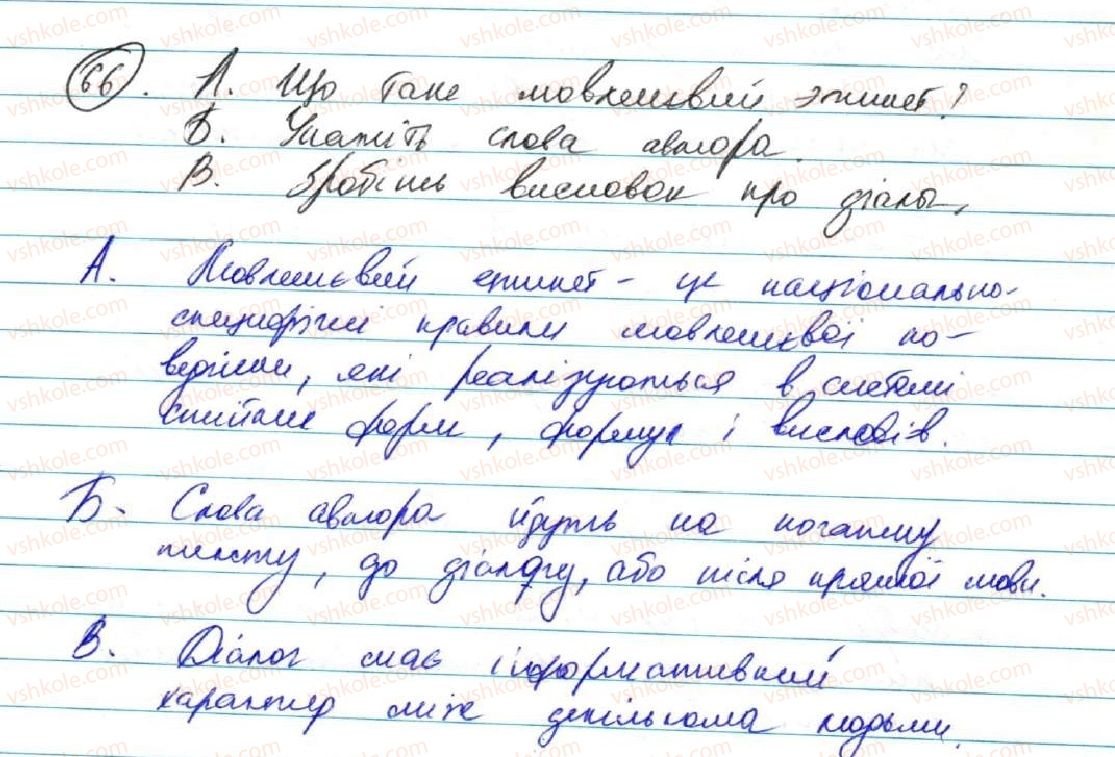 66. А. Що таке мовленнєвий этикет?
Б. Укажіть слова автора.
В. Зробіть висновок про діалог.
А. Мовленнєвий етикет - це національно-
специфічні правила мовленнєвої по-
ведінки, які реалізуються в системі
стійких форм, формул і висловів.
Б. Слова автора йдуть на початку
тексту, до діалогу, або після прямої мови.
В. Діалог має інформативний
характер між декількома людьми.